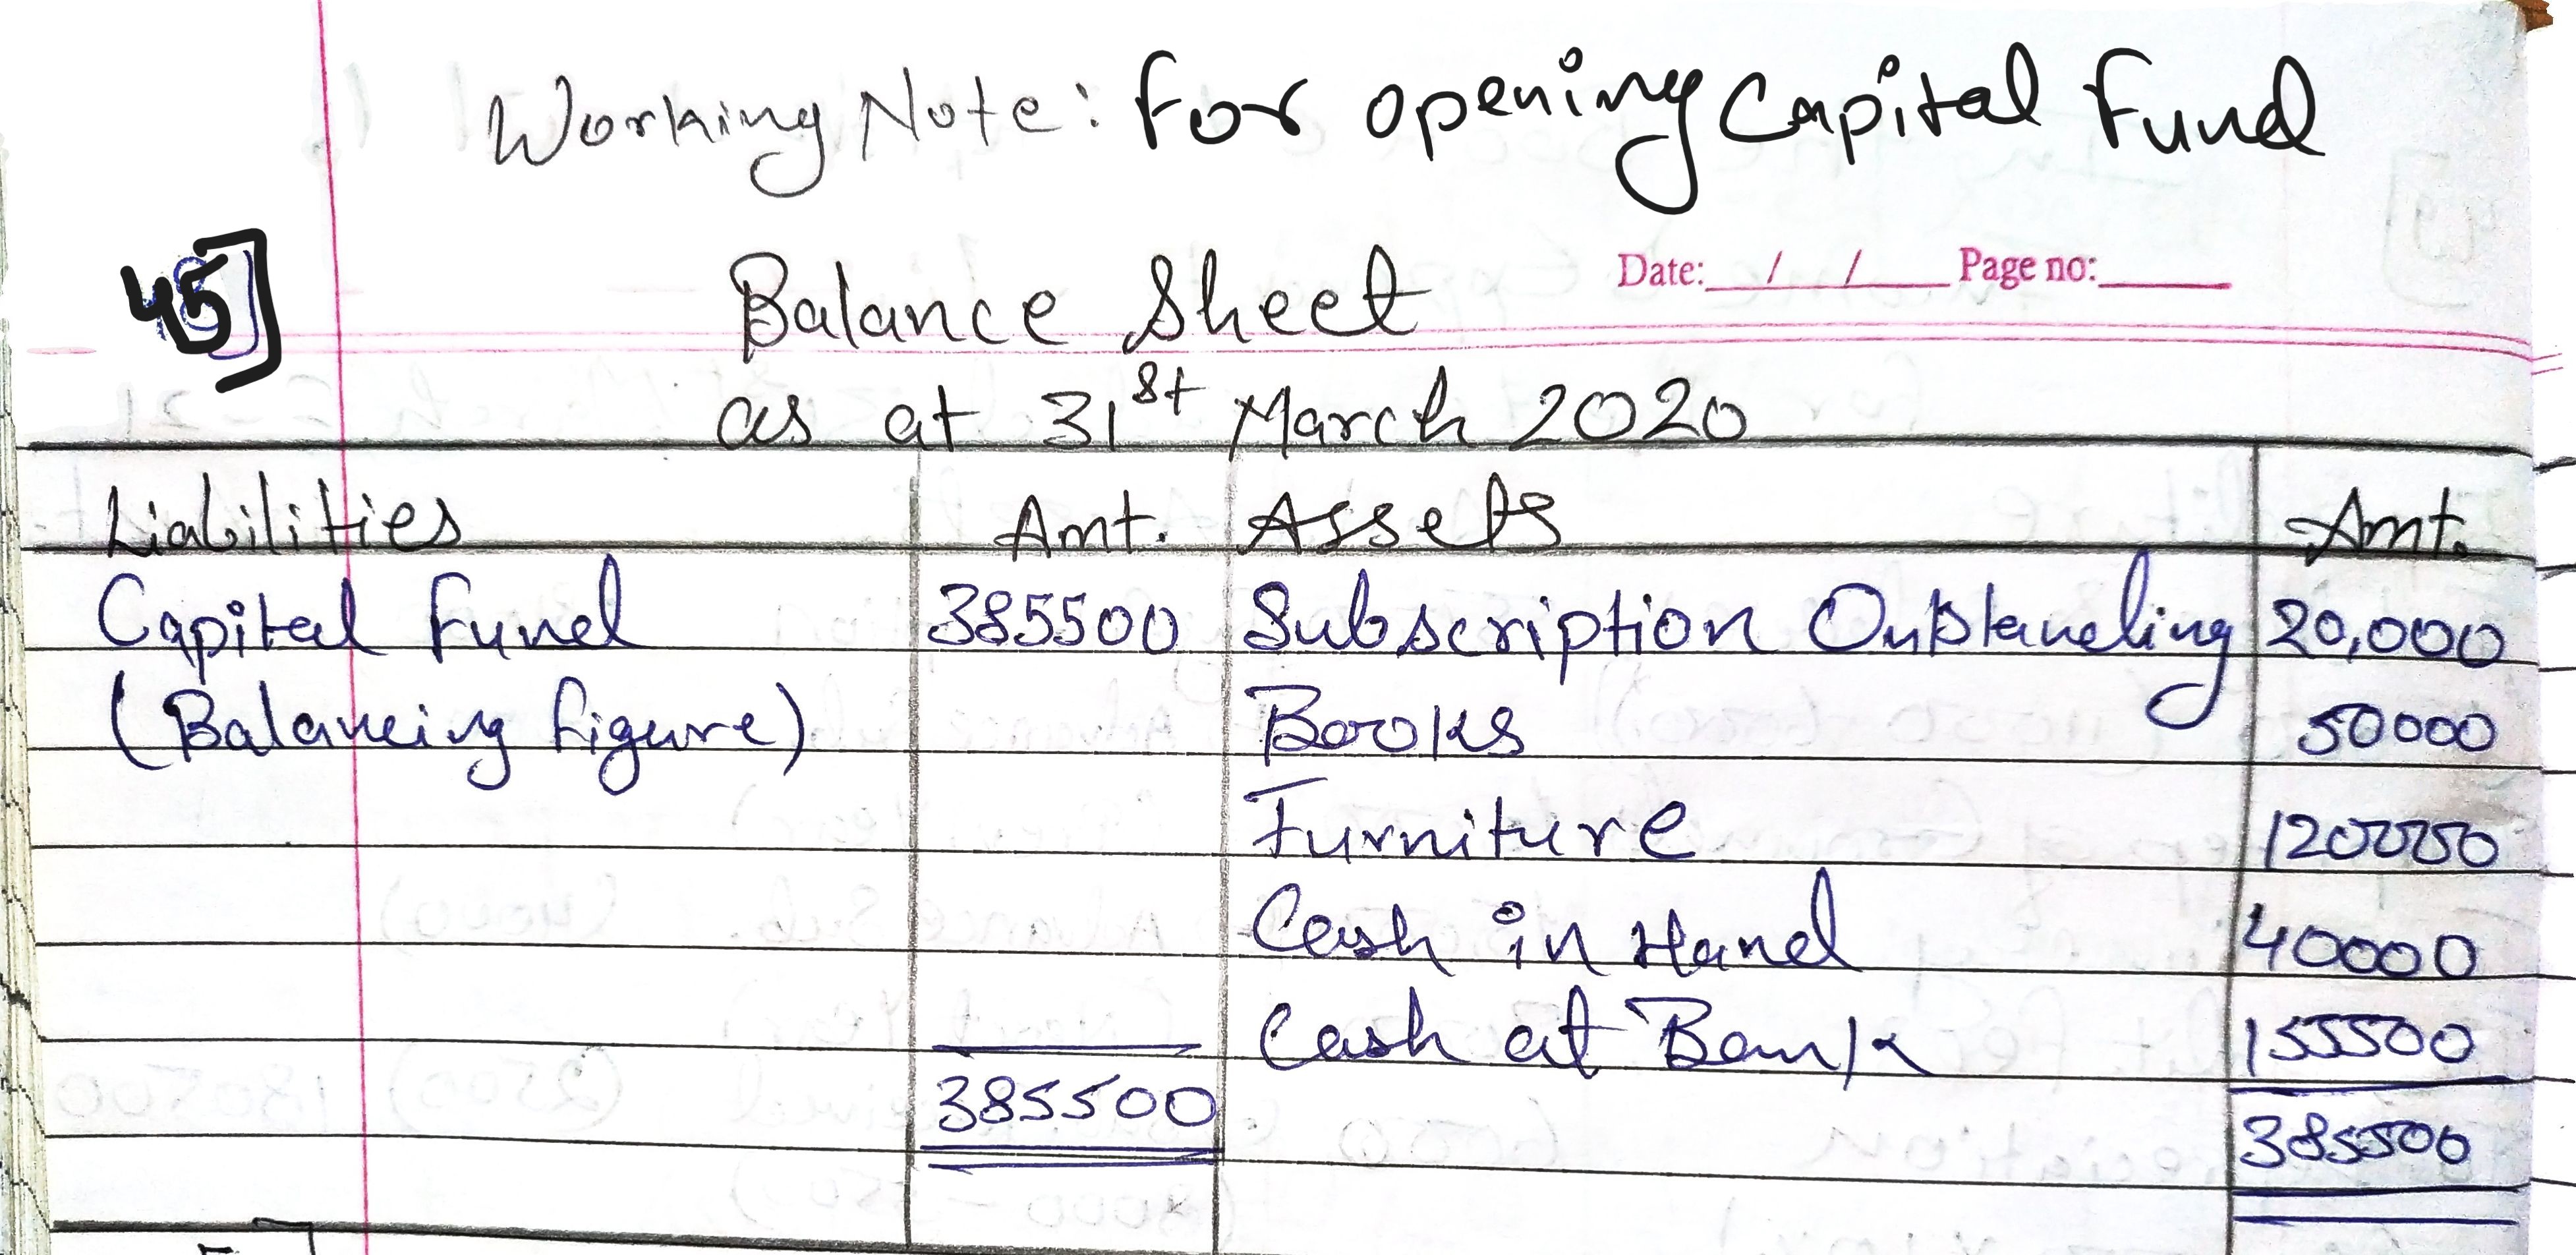 Working Note: For opening Capital Fund
45]
Date: / / Page no:
Balance Sheet
as at 31st March 2020
Liabilities Amt. Assets Amt.
Capital Fund 385500 Subscription Outstanding 20,000
(Balancing figure) Books 50000
Furniture 120000
Cash in Hand 40000
Cash at Bank 155500
385500 385500